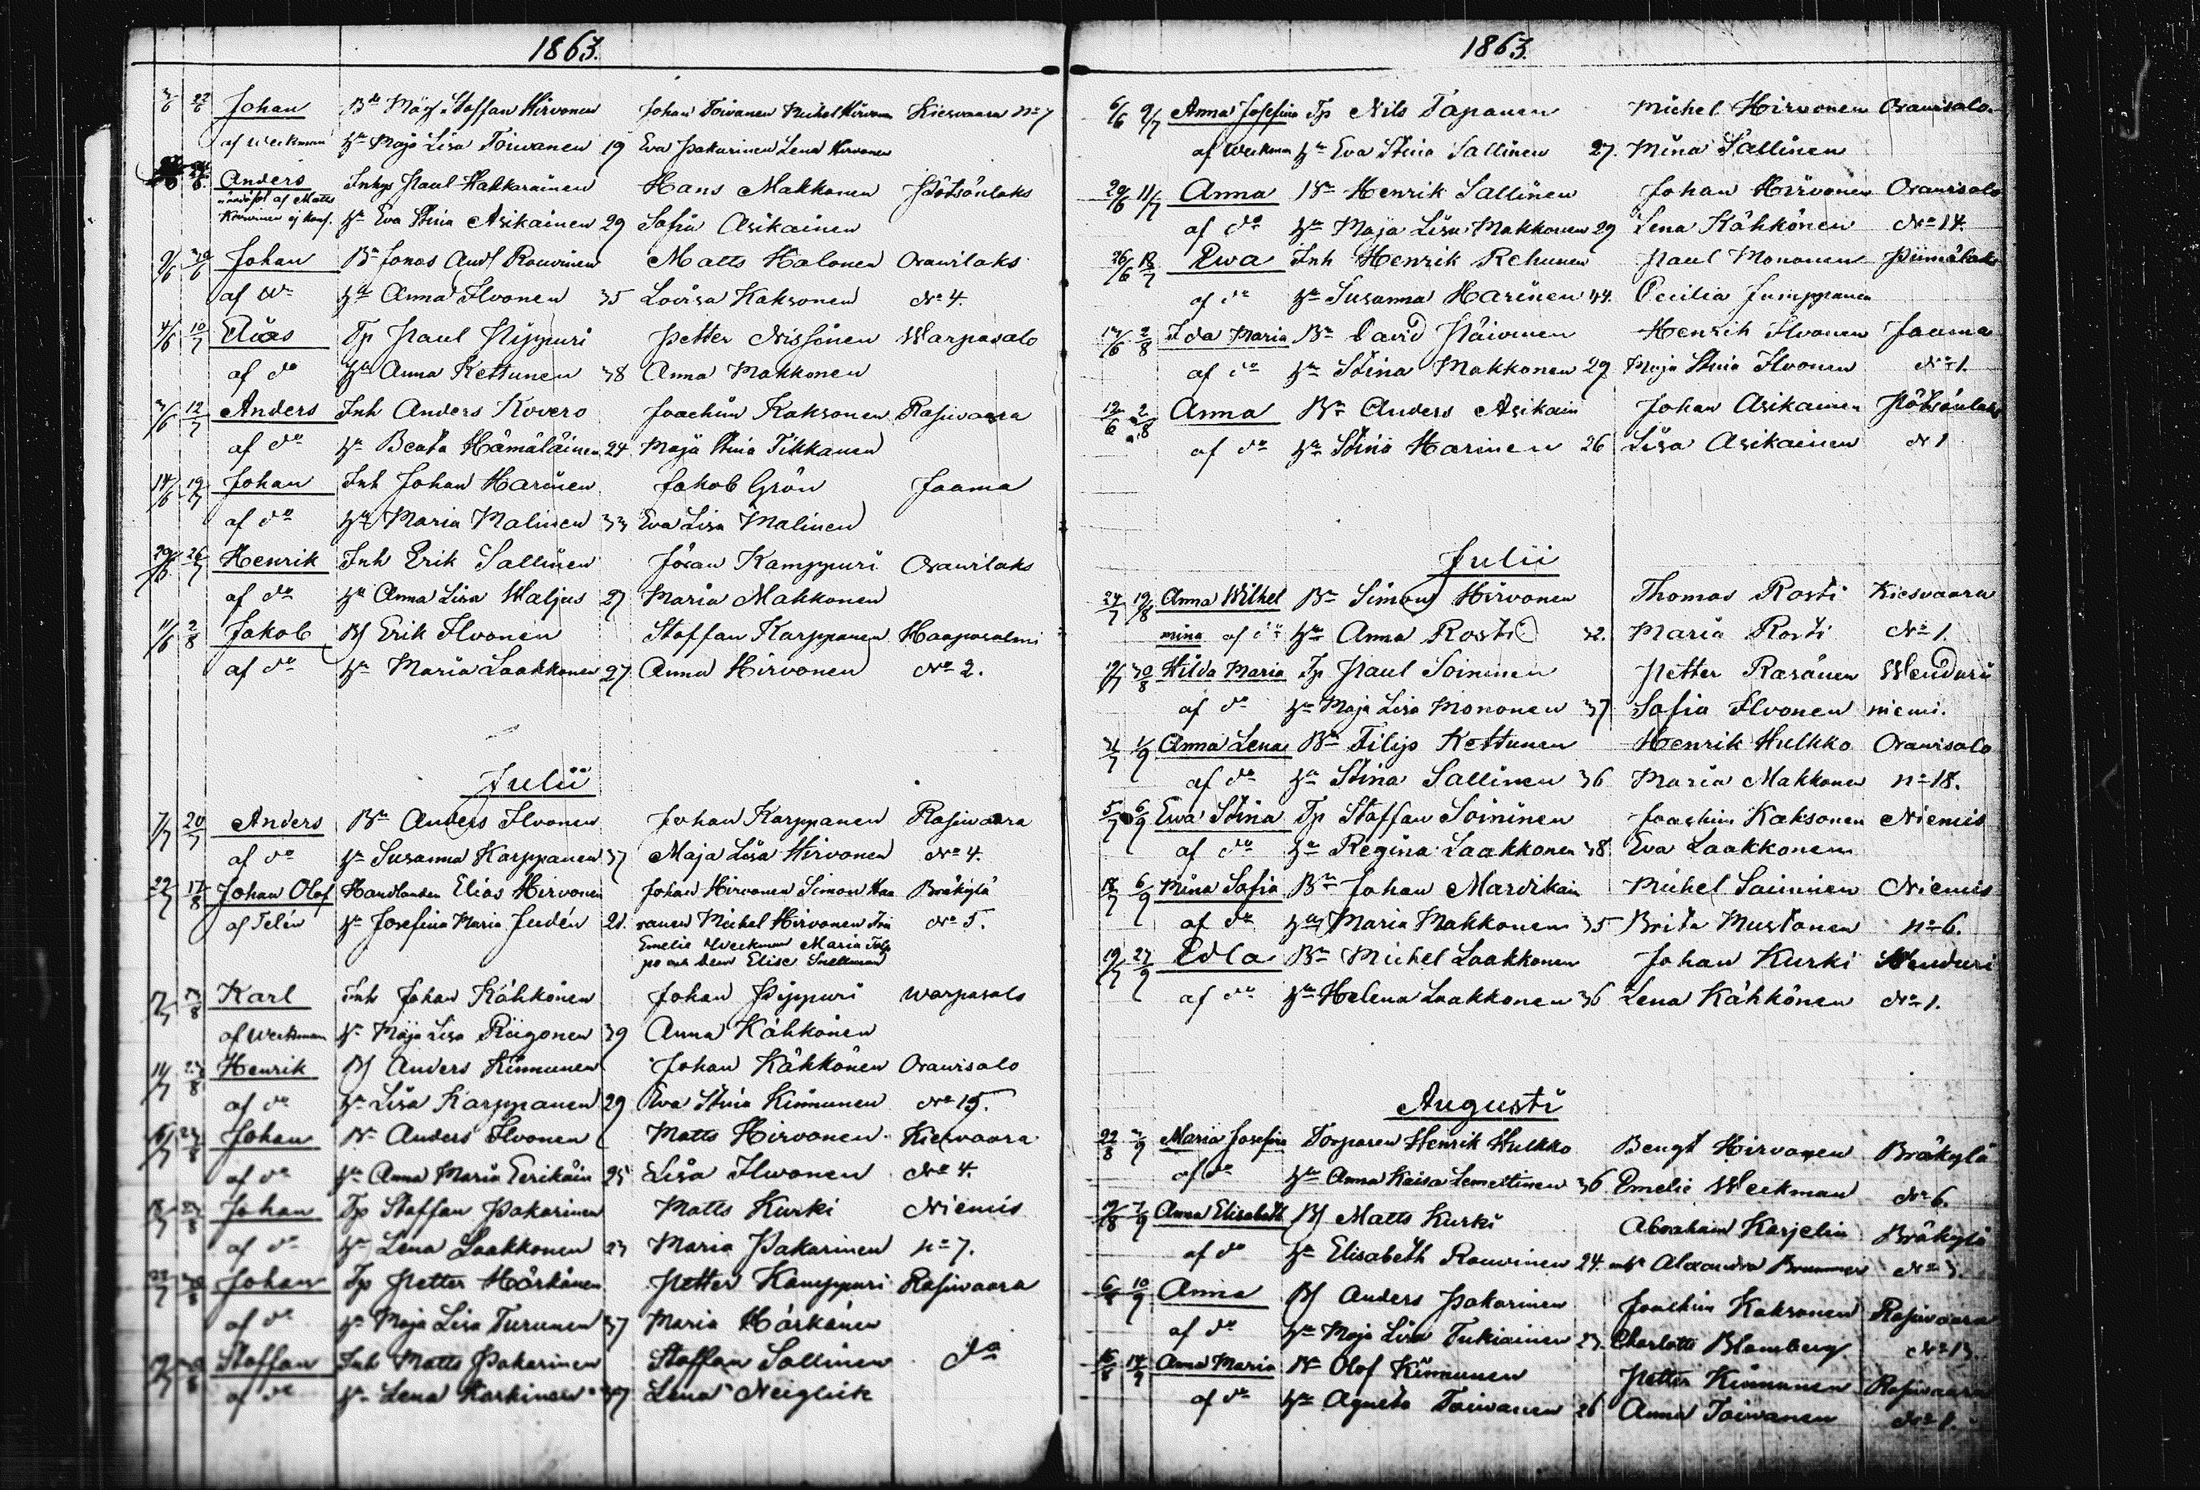 1863.
Johan Staffan Hirvonen Johan Toivanen Michel Hirvonen Kiesvaara No 7
af Weckman Hu Maja Lisa Toiwanen 19 Eva Pakarinen Lena Hirvonen
Anders Inhys Paul Hakkarainen Hans Makkonen Pötsönlaks
af Matts
Hu Eva Stina Asikainen 29 Sofia Asikainen
Johan Bn Jonas And Rouvinen Matts Halonen Oravilaks
af Wn Hu Anna Ilvonen 35 Lovisa Kaksonen No 4.
4/6 10/7 Elias Tp Paul Pippuri Petter Nissinen Warpasalo
af do Hu Anna Kettunen 38 Anna Makkonen
12/7 Anders Inh Anders Kovero Joachim Kaksonen Rasivaara
af do Hu Beata Hämäläinen 24 Maja Stina Tikkanen
14/6 19/7 Johan Inh Johan Harinen Jakob Grön Jaama
af do Hu Maria Malinen 33 Eva Lisa Malinen
26/7 Henrik Inh Erik Sallinen Göran Kamppuri Oravilaks
af do Hu Anna Lisa Waljus 27 Maria Makkonen
11/6 2/8 Jakob Bf Erik Ilvonen Staffan Karppanen Haapasalmi
af do Hu Maria Laakkonen 27 Anna Hirvonen No 2.
Julii
7/7 20/7 Anders Bn Anders Ilvonen Johan Karppanen Rasivaara
af do Hu Susanna Karppanen 37 Maja Lisa Hirvonen No 4.
22/7 17/8 Johan Olof Handlanden Elias Hirvonen Johan Hirvonen Simon Haa Bräkylä
af Telén Hu Josefina Maria Judén 21. ranen Michel Hirvonen No 5.
Emelie Weckman Maria
Elise Snellman
Karl Inh Johan Kähkönen Johan Pippuri Warpasalo
af Weckman Hu Maja Lisa Riigonen 39 Anna Kähkönen
14/7 23/8 Henrik Bf Anders Kinnunen Johan Kähkönen Oravisalo
af do Hu Lisa Karppanen 29 Eva Stina Kinnunen No 15.
23/8 Johan Bn Anders Ilvonen Matts Hirvonen Kiesvaara
af do Hu Anna Maria Eerikäin 25 Lisa Ilvonen No 4.
18/7 23/8 Johan Tp Staffan Pakarinen Matts Kurki Niemis
af do Hu Lena Laakkonen 23 Maria Pakarinen No 7.
Johan Tp Petter Härkönen Petter Kamppuri Rasivaara
af do Hu Maja Lisa Turunen 37 Maria Härkönen
Staffan Inh Matts Pakarinen Staffan Sallinen do
af do Hu Lena Harkinen 37 Lena Neiglick
1863.
6/6 9/7 Anna Josefina Tp Nils Tapanen Michel Hirvonen Oravisalo
af Weckman Hu Eva Stina Sallinen 27. Mina Sallinen
29/6 11/7 Anna Bn Henrik Sallinen Johan Hirvonen Oravisalo
af do Hu Maja Lisa Makkonen 29 Lena Kähkönen No 14.
26/6 18/7 Ewa Inh Henrik Rehunen Paul Mononen Piimälaks
af do Hu Susanna Harinen 44. Cecilia Jumppanen
17/6 2/8 Ida Maria Bn David Päivinen Henrik Ilvonen Jaama
af do Hu Stina Makkonen 29 Maja Stina Ilvonen No 1.
12/6 2/8 Anna Bn Anders Asikain Johan Asikainen Pötsönlaks
af do Hu Stina Harinen 26 Lisa Asikainen N 1
Julii
24/7 19/8 Anna Wilhel Bn Simon Hirvonen Thomas Rosti Kiesvaara
mina af do Hu Anna Rosti 32. Maria Rosti No 1.
30/8 Hilda Maria Tp Paul Soininen Petter Räsänen Wenduri
af do Hu Maja Lisa Mononen 37 Sofia Ilvonen niemi.
1/9 Anna Lena Bn Filip Kettunen Henrik Hulkko Oravisalo
af do Hu Stina Sallinen 36 Maria Makkonen No 18.
5/7 6/9 Ewa Stina Tp Staffan Soininen Joachim Kaksonen Niemis
af do Hu Regina Laakkonen 38. Eva Laakkonen
18/7 6/9 Mina Sofia Bn Johan Mardikain Michel Saininen Niemis
af do Hu Maria Makkonen 35 Brita Mustonen No 6.
19/7 27/9 Edla Bn Michel Laakkonen Johan Kurki Wenduri
af do Hu Helena Laakkonen 36 Lena Kähkönen No 1.
Augusti
22/8 Maria Josefina Torparen Henrik Hulkko Bengt Hirvonen Bräkylä
af do Hu Anna Kaisa Lemettinen 36 Emelie Weckman No 6.
Anna Elisabeth Bf Matts Kurki Abraham Karjelin Bräkylä
af do Hu Elisabeth Rouvinen 24. Alexandra Brunner No 3.
6/8 10/9 Anna Bf Anders Pakarinen Joachim Kaksonen Rasivaara
af do Hu Maja Lisa Tukiainen 23. Charlotta Blomberg No 13.
Anna Maria Bn Olof Kinnunen Petter Kinnunen Rasivaara
af do Hu Agneta Toiwanen 26 Anna Toiwanen No 1.